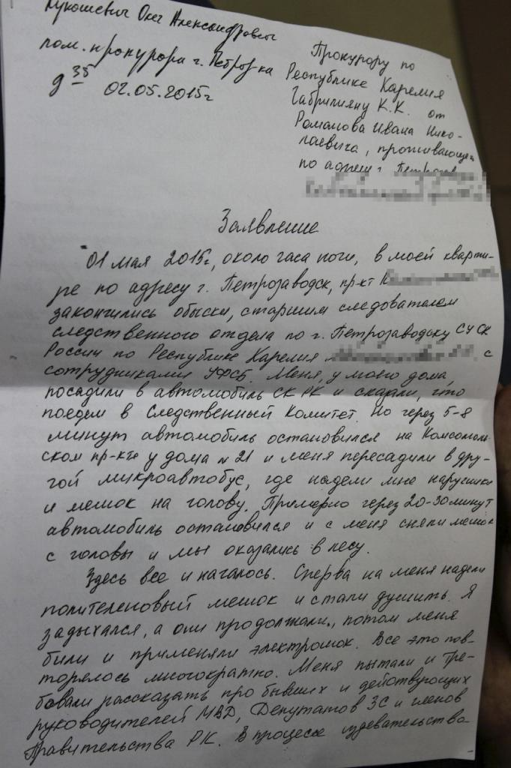 Лукошевич Олег Александрович
пом. прокурора г. Петроз-ка
02.05.2015г
Прокурору по
Республике Карелия
Габриляну К.К. от
Романова Ивана Нико-
лаевича, проживающего
по адресу г. 
Заявление
01 мая 2015г, около часа ночи, в моей кварти-
ре по адресу г. Петрозаводск, пр-кт
закончились обыски, старшим следователем
следственного отдела по г. Петрозаводску СУ СК
России по Республике Карелия с
сотрудниками УФСБ. Меня, у моего дома,
посадили в автомобиль СК РК и сказали, что
поедем в Следственный Комитет. Но через 5-8
минут автомобиль остановился на Комсомоль-
ском пр-кте у дома № 21 и меня пересадили в дру-
гой микроавтобус, где надели мне наручники
и мешок на голову. Примерно через 20-30 минут
автомобиль остановился и с меня сняли мешок
с головы и мы оказались в лесу.
Здесь все и началось. Сперва на меня надели
полителеновый мешок и стали душить. Я
задыхался, а они продолжали, потом меня
били и применяли электрошок. Все это пов-
торялось многократно. Меня пытали и тре-
бовали рассказать про бывших и действующих
руководителей МВД, Депутатов ЗС и членов
Правительства РК. В процессе издевательства